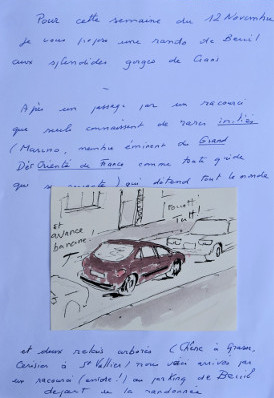 Pour cette semaine du 12 Novembre
je vous propose une rando de Beuil
aux splendides gorges de Cians
-
Après un passage par un raccourci
que seuls connaissent de rares initiés
(Marino, membre éminent du Grand
DésOrienté de France comme toute guide
qui se respecte) qui détend tout le monde
et
avance
banane!
Pouett!
Tutt!
et deux relais arborés (Chêne à Grasse,
Cerisier à St Vallier) nous voici arrivés par
un raccourci (encore!) au parking de Beuil
départ de la randonnée